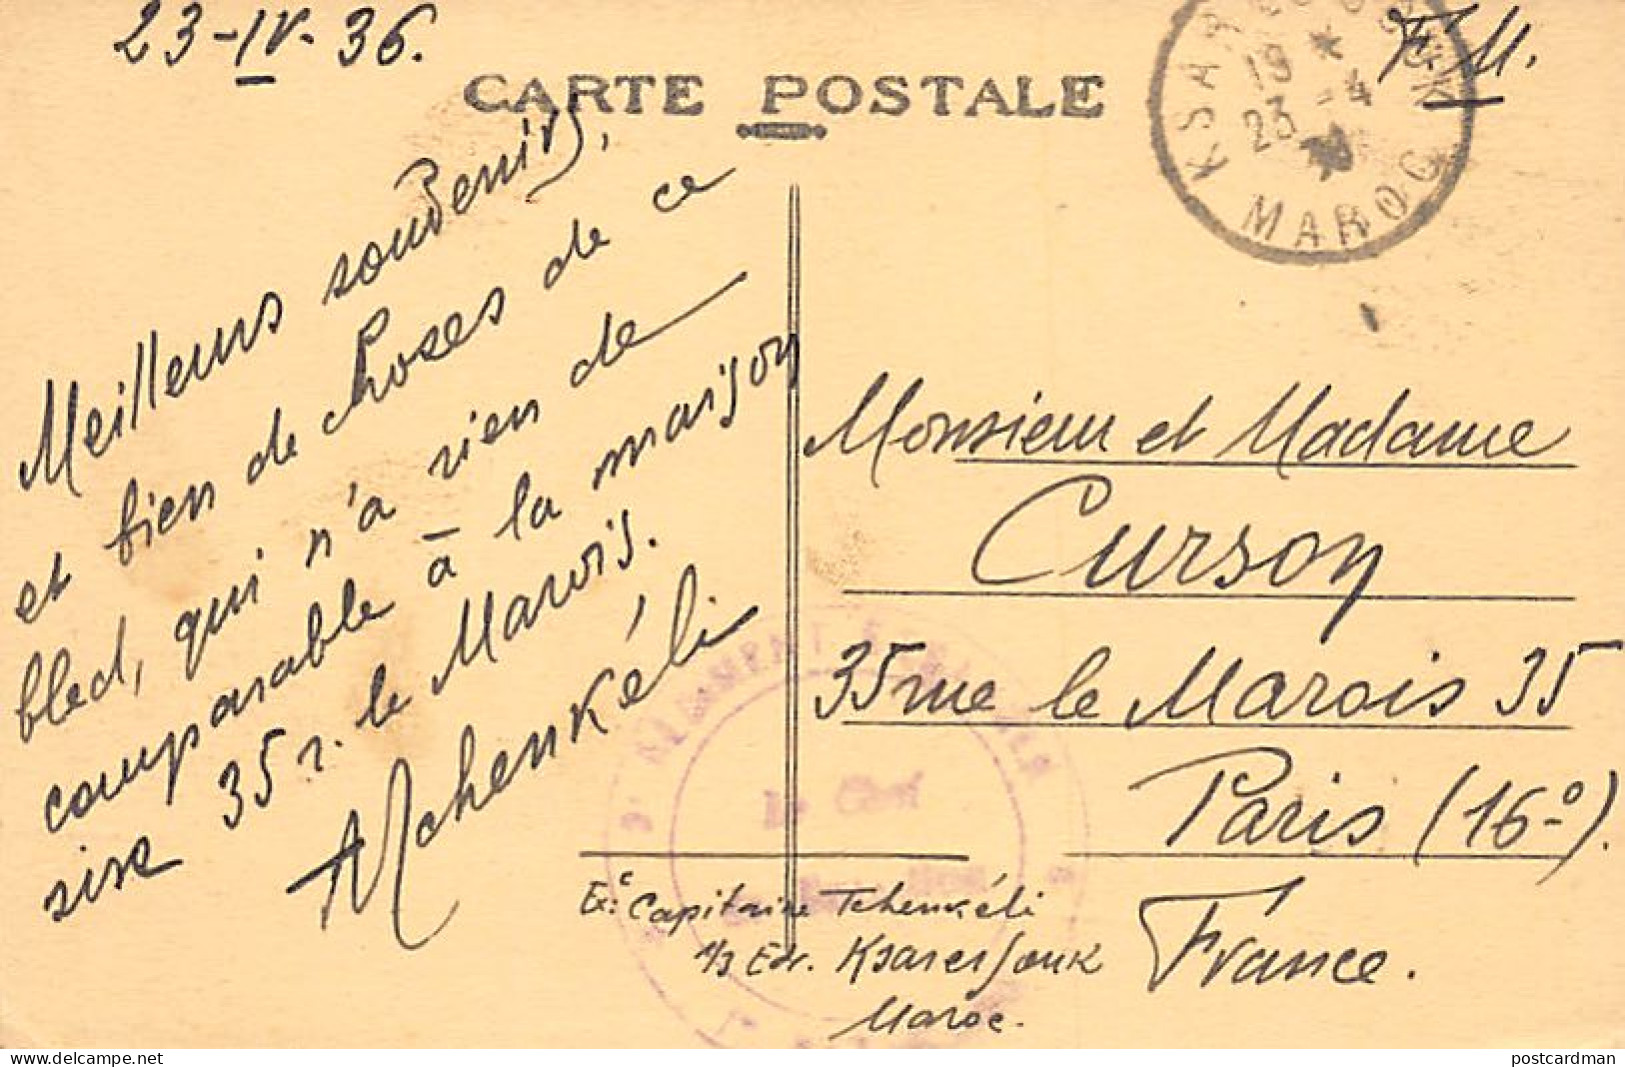 23-IV-36.
F.M.
CARTE POSTALE
KSAR
19 *
23 -4
MAROC
Meilleurs souvenirs,
et bien de choses de ce
bled, qui n'a rien de
comparable à la maison
sise 35 r. le Marois.
Tchenkéli
Monsieur et Madame
Curson
35 rue le Marois 35
Paris (16°).
France.
Le Chef
Exc: Capitaine Tchenkéli
Ksar es Souk
Maroc.
postcardman